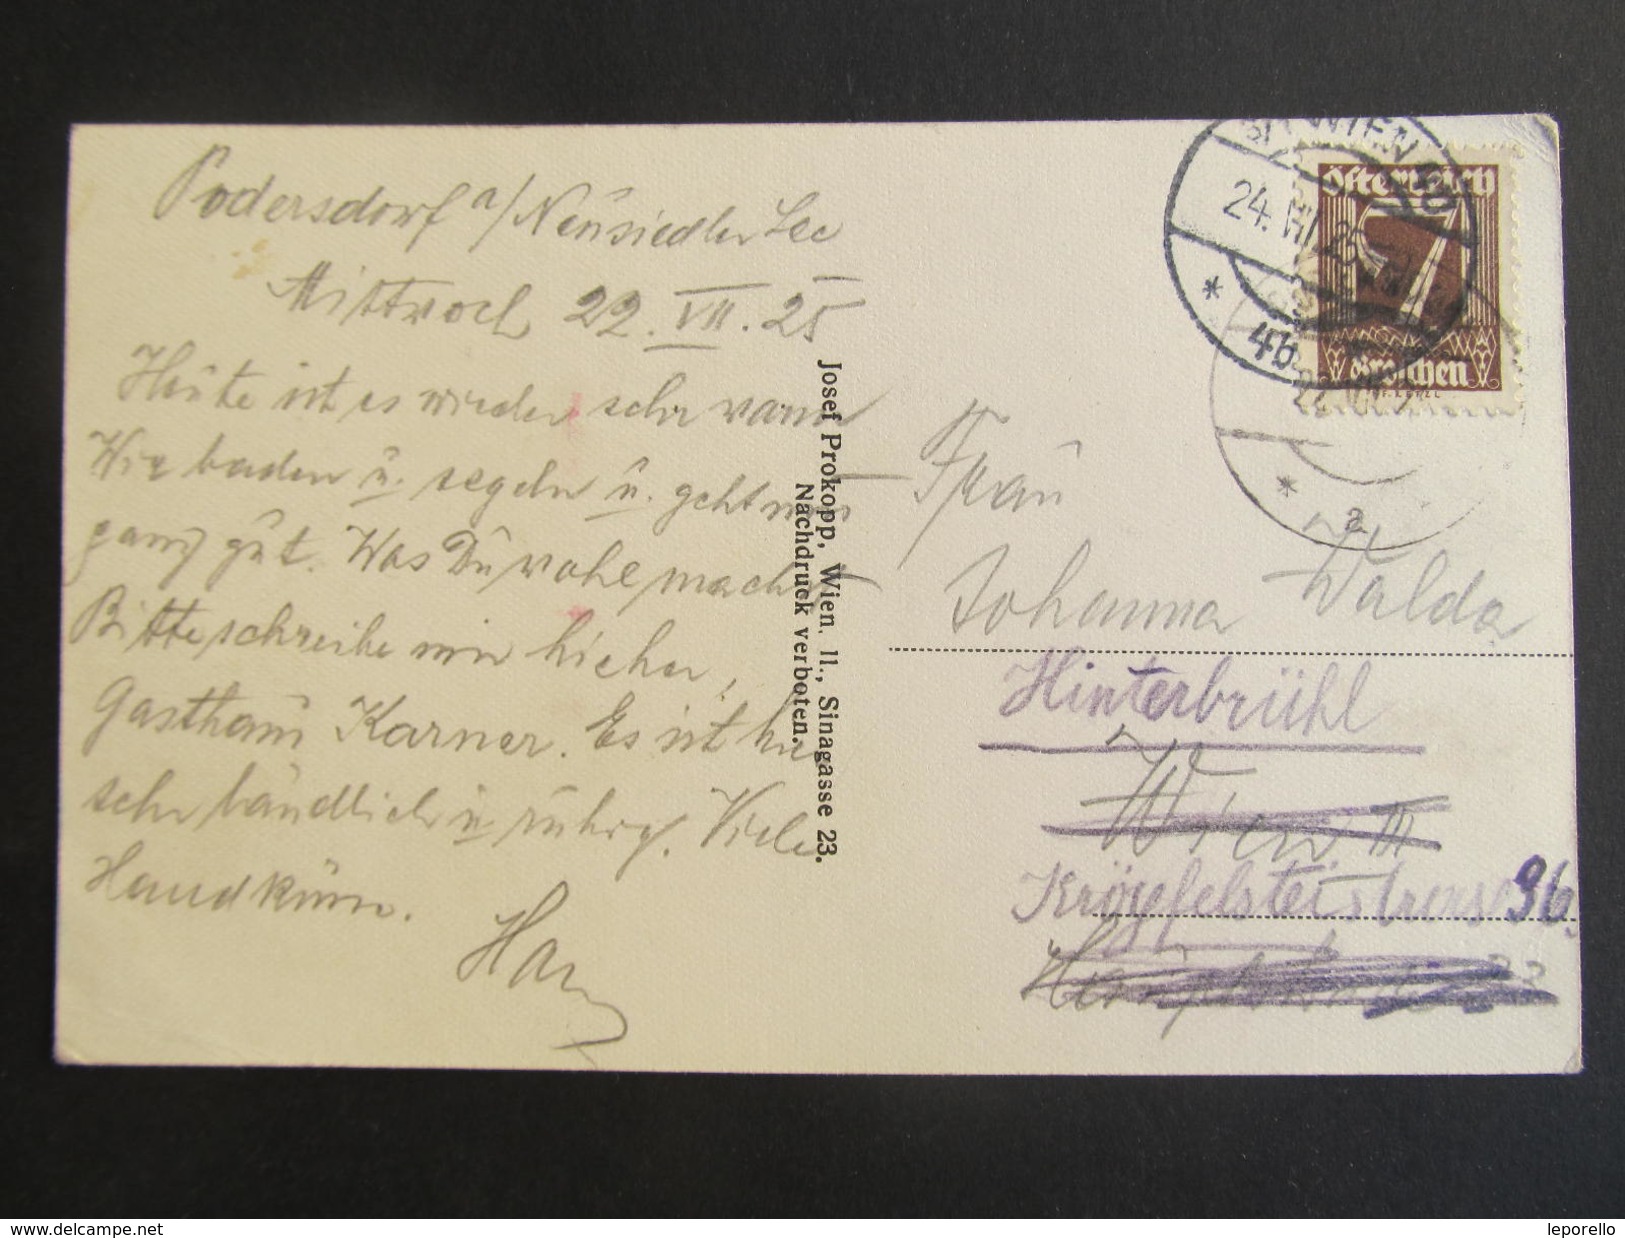 Podersdorf a/Neusiedler See
Mittwoch 22. VII. 25
Heute ist es wieder sehr warm
Wir baden u. segeln u. geht mir
ganz gut. Was Du wohl machst
Bitte schreibe mir hieher,
Gasthaus Karner. Es ist hier
sehr ländlich u ruhig. Viele
Handküsse.
Josef Prokopp, Wien. II., Sinagasse 23.
Nachdruck verboten.
WIEN
24. VII. 25
* 4b
Österreich
7
Groschen
* a
Frau
Johanna Walda
Hinterbrühl
Wien III
96.
www.delcampe.net
leporello